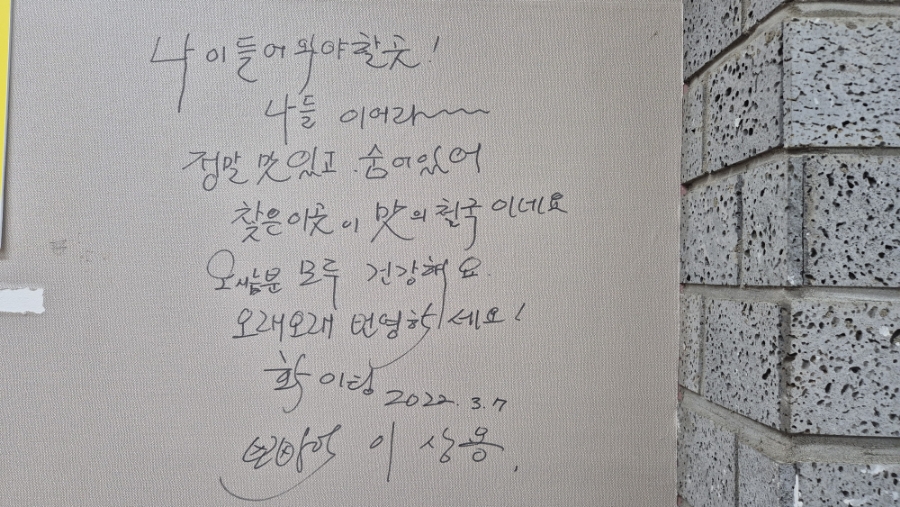 나이들어 와야할곳!
나들이어라~~~
정말 맛있고 숨어있어
찾은이곳이 맛의 천국이네요
모두 건강해요
오래오래 번영하세요!
화이팅
2022.3.7
이상용